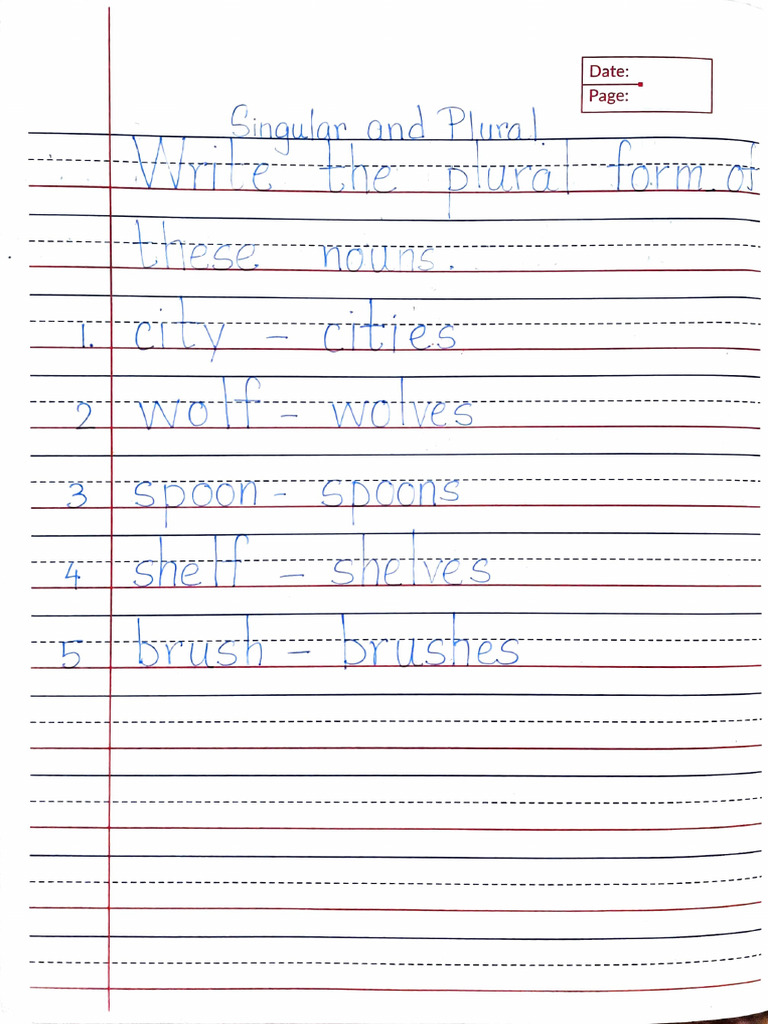 Date:
Page:
Singular and Plural
Write the plural form of
these nouns.
1. city - cities
2 wolf - wolves
3 spoon - spoons
4 shelf - shelves
5 brush - brushes